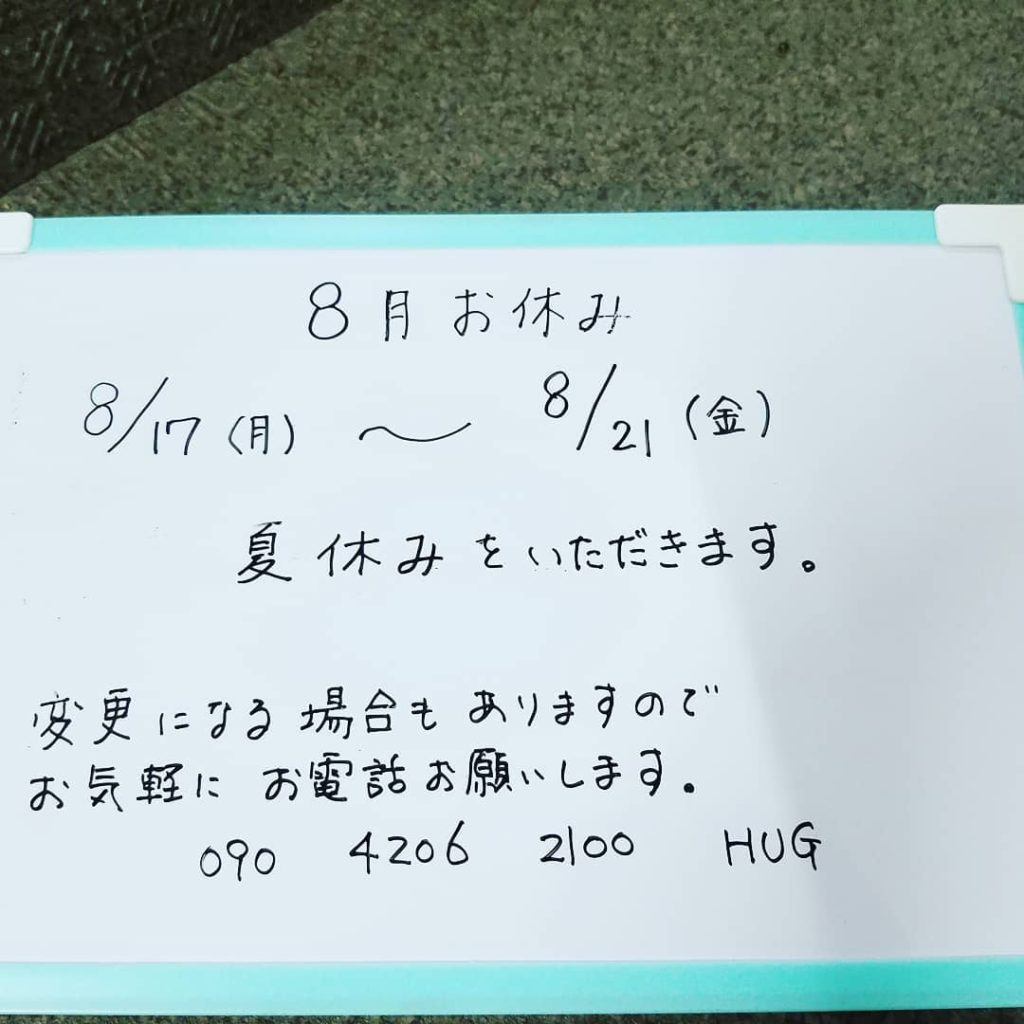 8月お休み
8/17(月) 〜 8/21(金)
夏休みをいただきます。
変更になる場合もありますので
お気軽にお電話お願いします。
090 4206 2100 HUG